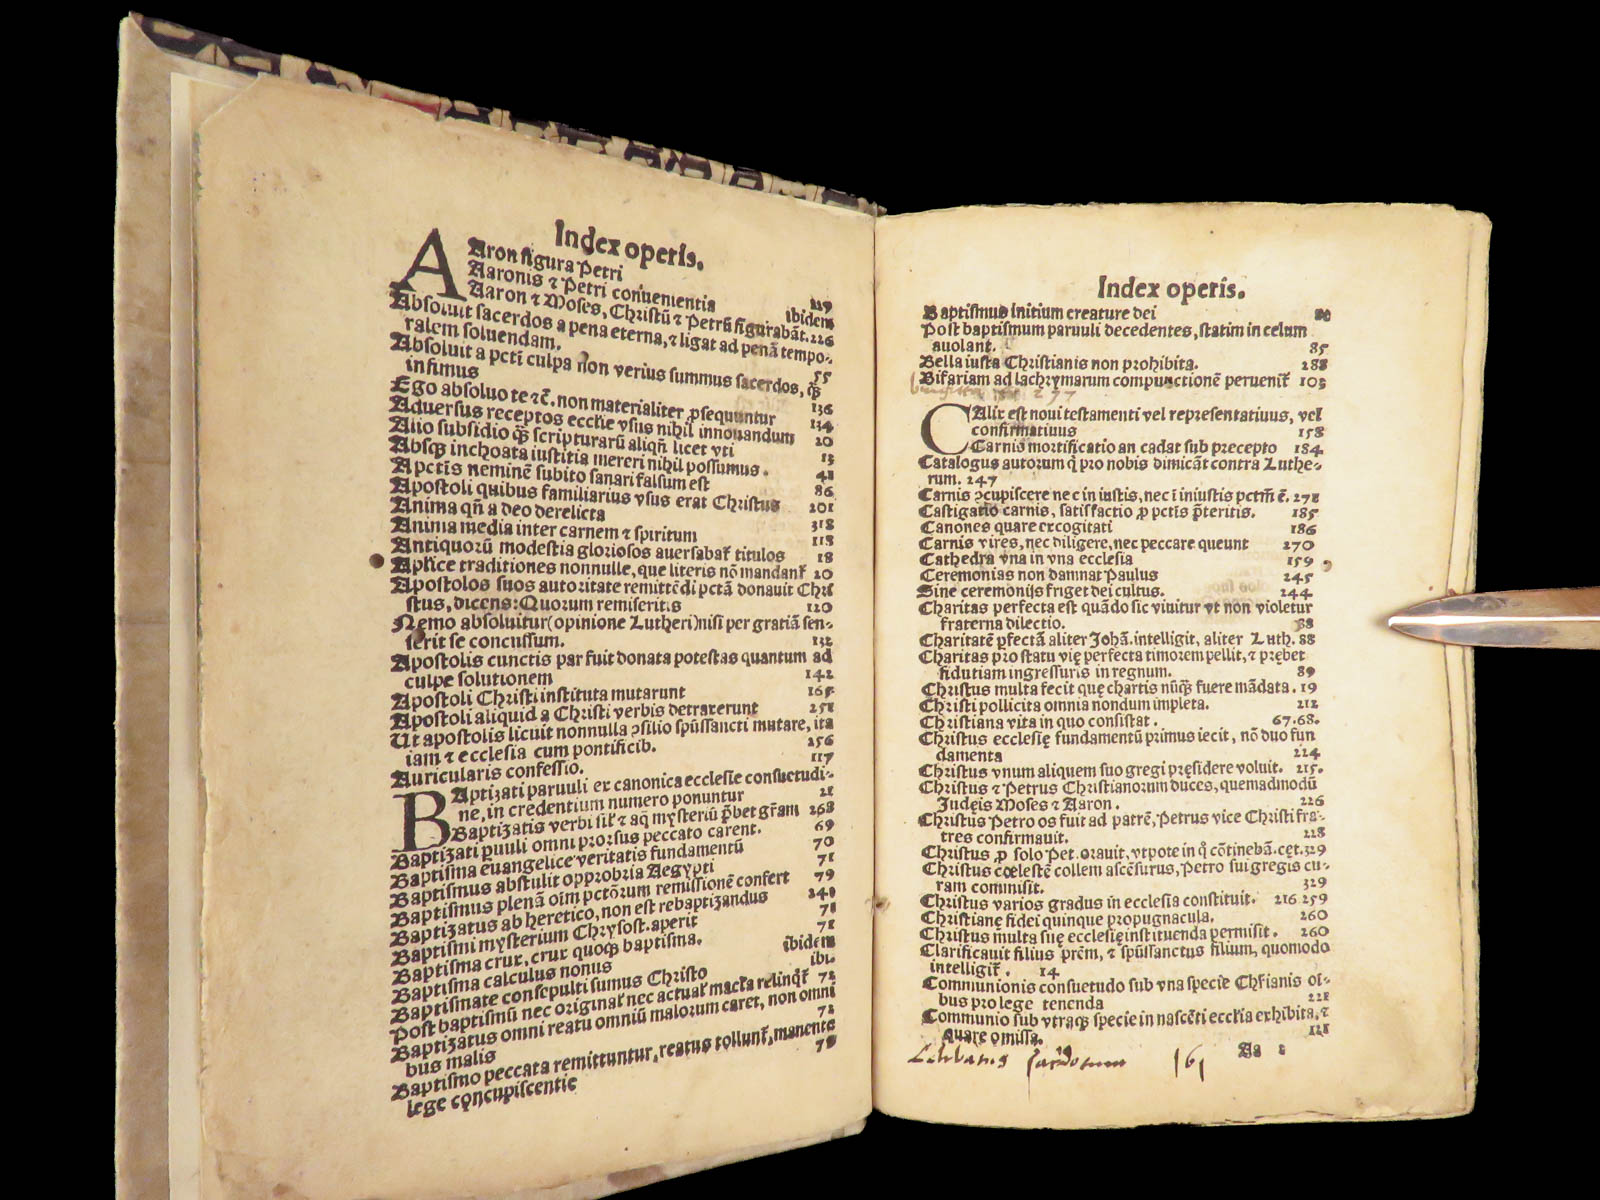 Index operis.
AAron figura Petri 119
Aaronis ⁊ Petri conuenientia ibidem
Aaron ⁊ Moses, Christũ ⁊ Petrũ figurabãt. 226
Absoluit sacerdos a pena eterna, ⁊ ligat ad penã tempo-
ralem soluendam. 55
Absoluit a pctĩ culpa non verius summus sacerdos, q̃
infimus 136
Ego absoluo te ⁊c̃. non materialiter ꝓsequuntur 134
Aduersus receptos ecclie vsus nihil innouandum 20
Alio subsidio q̃ scripturarũ aliqñ licet vti 13
Absqꝫ inchoata iustitia mereri nihil possumus. 41
A pctĩs neminẽ subito sanari falsum est 86
Apostoli quibus familiarius vsus erat Christus 201
Anima qñ a deo derelicta 318
Anima media inter carnem ⁊ spiritum 118
Antiquorũ modestia gloriosos auersabat̃ titulos 18
Aplice traditiones nonnulle, que literis nõ mandant̃ 20
Apostolos suos autoritate remittẽdi pctã donauit Chri
stus, dicens: Quorum remiseritis 120
Nemo absoluitur (opinione Lutheri) nisi per gratiã sen-
serit se concussum. 132
Apostolis cunctis par fuit donata potestas quantum ad
culpe solutionem 142
Apostoli Christi instituta mutarunt 165
Apostoli aliquid a Christi verbis detraxerunt 251
Ut apostolis licuit nonnulla ↄsilio spũssancti mutare, ita
iam ⁊ ecclesia cum pontificib. 256
Auricularis confessio. 117
BAptizati paruuli ex canonica ecclesie consuetudi-
ne, in credentium numero ponuntur 21
Baptizatis verbi sił ⁊ aq̃ mysteriũ p̃bet gr̃am 268
Baptizati ꝑuuli omni prorsus peccato carent. 69
Baptisma euangelice veritatis fundamentũ 70
Baptismus abstulit opprobria Aegypti 71
Baptismus plenã oĩm pctõrum remissionẽ confert 79
Baptizatus ab heretico, non est rebaptizandus 241
Baptismi mysterium Chrysost. aperit 71
Baptisma crux, crux quoqꝫ baptisma. 71
Baptisma calculus nonus ibidem
Baptismate consepulti sumus Christo ibi.
Post baptismũ nec original̃ nec actual̃ macl̃a relinqt̃ 72
Baptizatus omni reatu omniũ malorum caret, non omni
bus malis 72
Baptismo peccata remittuntur, reatus tollunt̃, manente
lege concupiscentie 79
Index operis.
Baptismus initium creature dei
Post baptismum paruuli decedentes, statim in celum
auolant. 85
Bella iusta Christianis non prohibita. 288
Bifariam ad lachrymarum compunctionẽ perueniť 103
CAlix est noui testamenti vel representatiuus, vel
confirmatiuus 158
Carnis mortificatio an cadat sub precepto 184
Catalogus autorum q̃ pro nobis dimicãt contra Luthe-
rum. 247
Carnis ↄcupiscere nec in iustis, nec ĩ iniustis pctm̃ ẽ. 271
Castigatio carnis, satisfactio ꝓ pctĩs p̃teritis. 185
Canones quare excogitati 186
Carnis vires, nec diligere, nec peccare queunt 270
Cathedra vna in vna ecclesia 159
Ceremonias non damnat Paulus 245
Sine ceremonijs friget dei cultus. 244
Charitas perfecta est quãdo sic viuitur vt non violetur
fraterna dilectio. 88
Charitatẽ ꝑfectã aliter Johã. intelligit, aliter Luth. 88
Charitas pro statu vię perfecta timorem pellit, ⁊ prębet
fidutiam ingressuris in regnum. 89
Christus multa fecit quę chartis nũqꝫ fuere mãdata. 19
Christi pollicita omnia nondum impleta. 212
Christiana vita in quo consistat. 67.68.
Christus ecclesię fundamentũ primus iecit, nõ duo fun
damenta 224
Christus vnum aliquem suo gregi pręsidere voluit. 215.
Christus ⁊ Petrus Christianorum duces, quemadmodũ
Judeis Moses ⁊ Aaron. 226
Christus Petro os fuit ad patrẽ, Petrus vice Christi fra-
tres confirmauit. 228
Christus ꝓ solo Pet. orauit, vtpote in q̃ cõtinebã. cęt. 329
Christus cœlestẽ collem ascẽsurus, Petro sui gregis cu-
ram commisit. 329
Christus varios gradus in ecclesia constituit. 216 259
Christianę fidei quinque propugnacula. 260
Christus multa suę ecclesię instituenda permisit. 260
Clarificauit filius prẽm, ⁊ spũssanctus filium, quomodo
intelligit̃. 14
Communionis consuetudo sub vna specie Chr̃ianis oĩ-
bus pro lege tenenda 221
Communio sub vtraqꝫ specie in nascẽti eccl̃ia exhibita, ⁊
quare omissa. 121
Aa
161